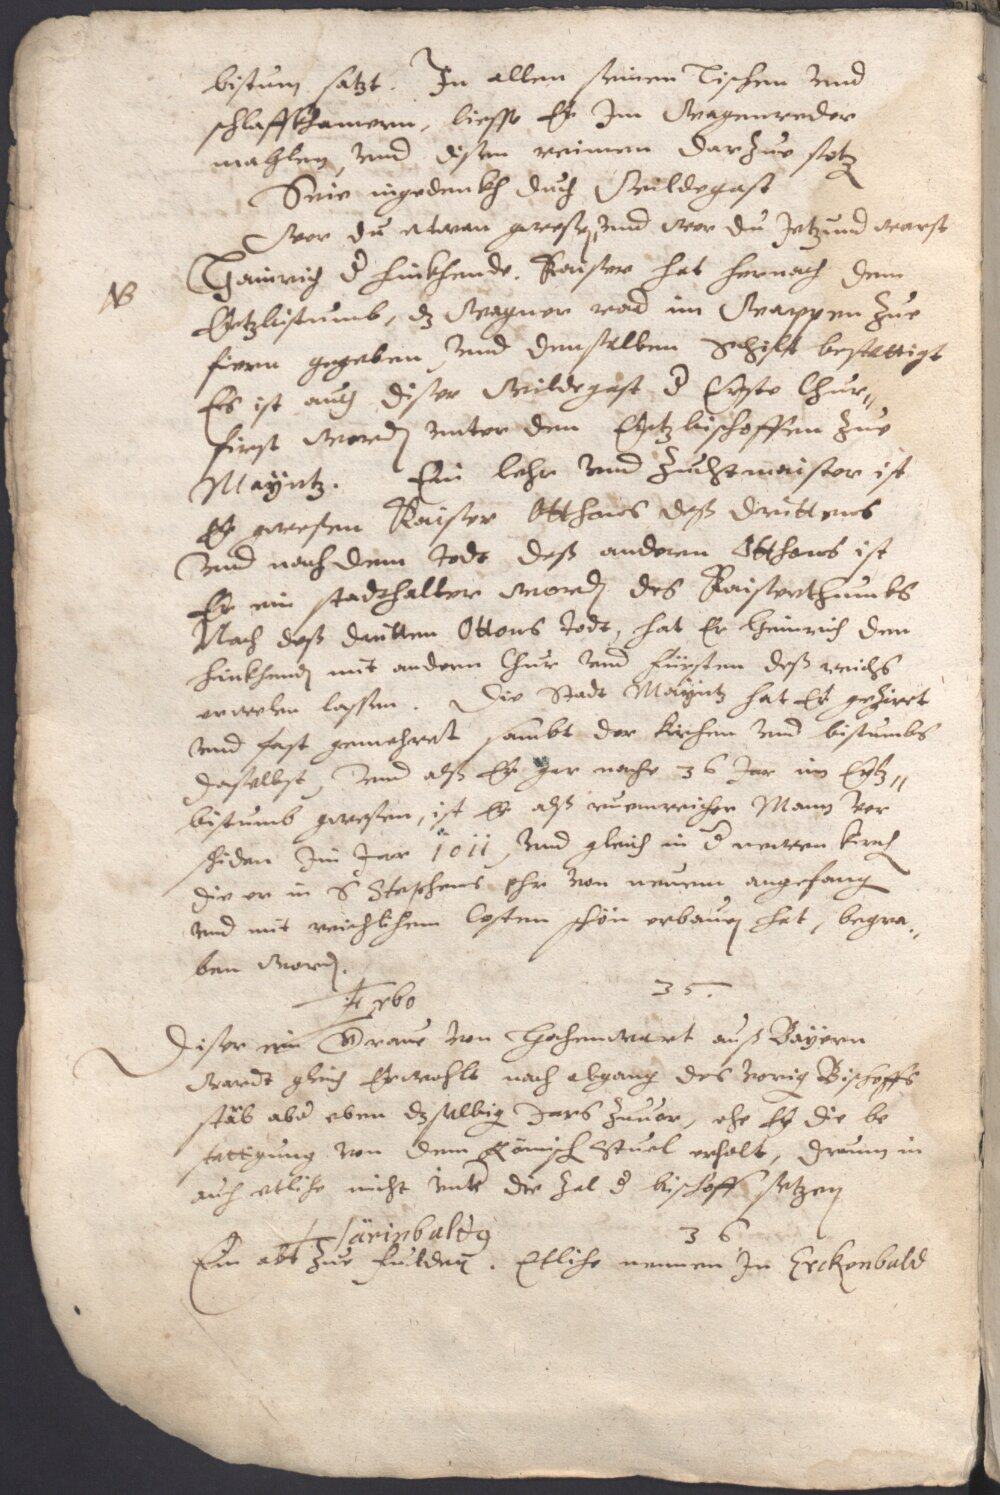 bistum satzt. In allen seinen Tischen vnd
schlaffkhamern, liesse Er Im Wagenreder
mahlen, vnd disen reimen darzue setz
Seie ingedenkh duch Willegast
Wer du etwan gewesen, vnd wer du Jetzund warst
NB
Hainrich d hinkhende. Kaiser hat hernach dem
Ertzbistumb, dz Wagner rad im Wappen zue
fiern gegeben, vnd denselben Schilt bestettigt
Es ist auch diser Willegast d Erste Chur„
first word vnter den Ertzbischoffen zue
Mayntz. Ein lehr vnd Zuchtmaister ist
Er gewesen Kaiser Otthons deß dritten
vnd nach dem todt deß anderen Otthons ist
Er ein stadthalter word des Kaiserthumbs
Nach deß dritten Ottons todt, hat Er Heinrich den
hinkhend mit andern Chur vnd fürsten deß reichs
erwelen lassen. Die Stadt Mayntz hat Er geziert
vnd fast gemehret sambt der kirchen vnd bistumbs
daselbst, vnd alß Er gar nache 36 Jar im Ertz„
bistumb gewesen, ist Er alß ruemreicher Mann ver
schiden Im Jar 1011, vnd gleich in d neuen kirch
die er in S Stephens ehr von neuem angefang
vnd mit reichlichem Costen schön erbauen hat, begra„
ben word.
Erbo 35.
Diser ein Graue von Hochenwart auß Bayern
wardt gleich Erwehlt nach abgang des vorig Bischoffs
starb aber eben dzselbig Jars zuuor, ehe Er die be
stettigung von dem Römisch Stuel erhalt, drumb in
auch etliche nicht vnter die Zal d bischoff setzen
36
Ein abt zue fulden. Etliche nennen In Erckenbald